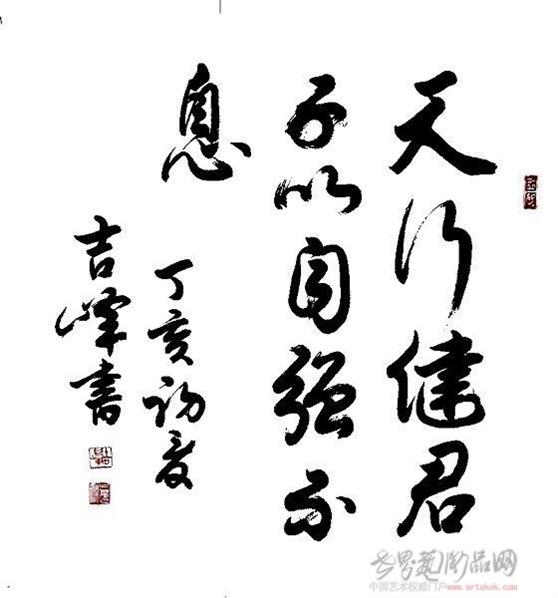 天行健君
子以自强不
息
丁亥初夏
吉峰書
世界艺术品网
中国艺术权威门户www.artokok.com